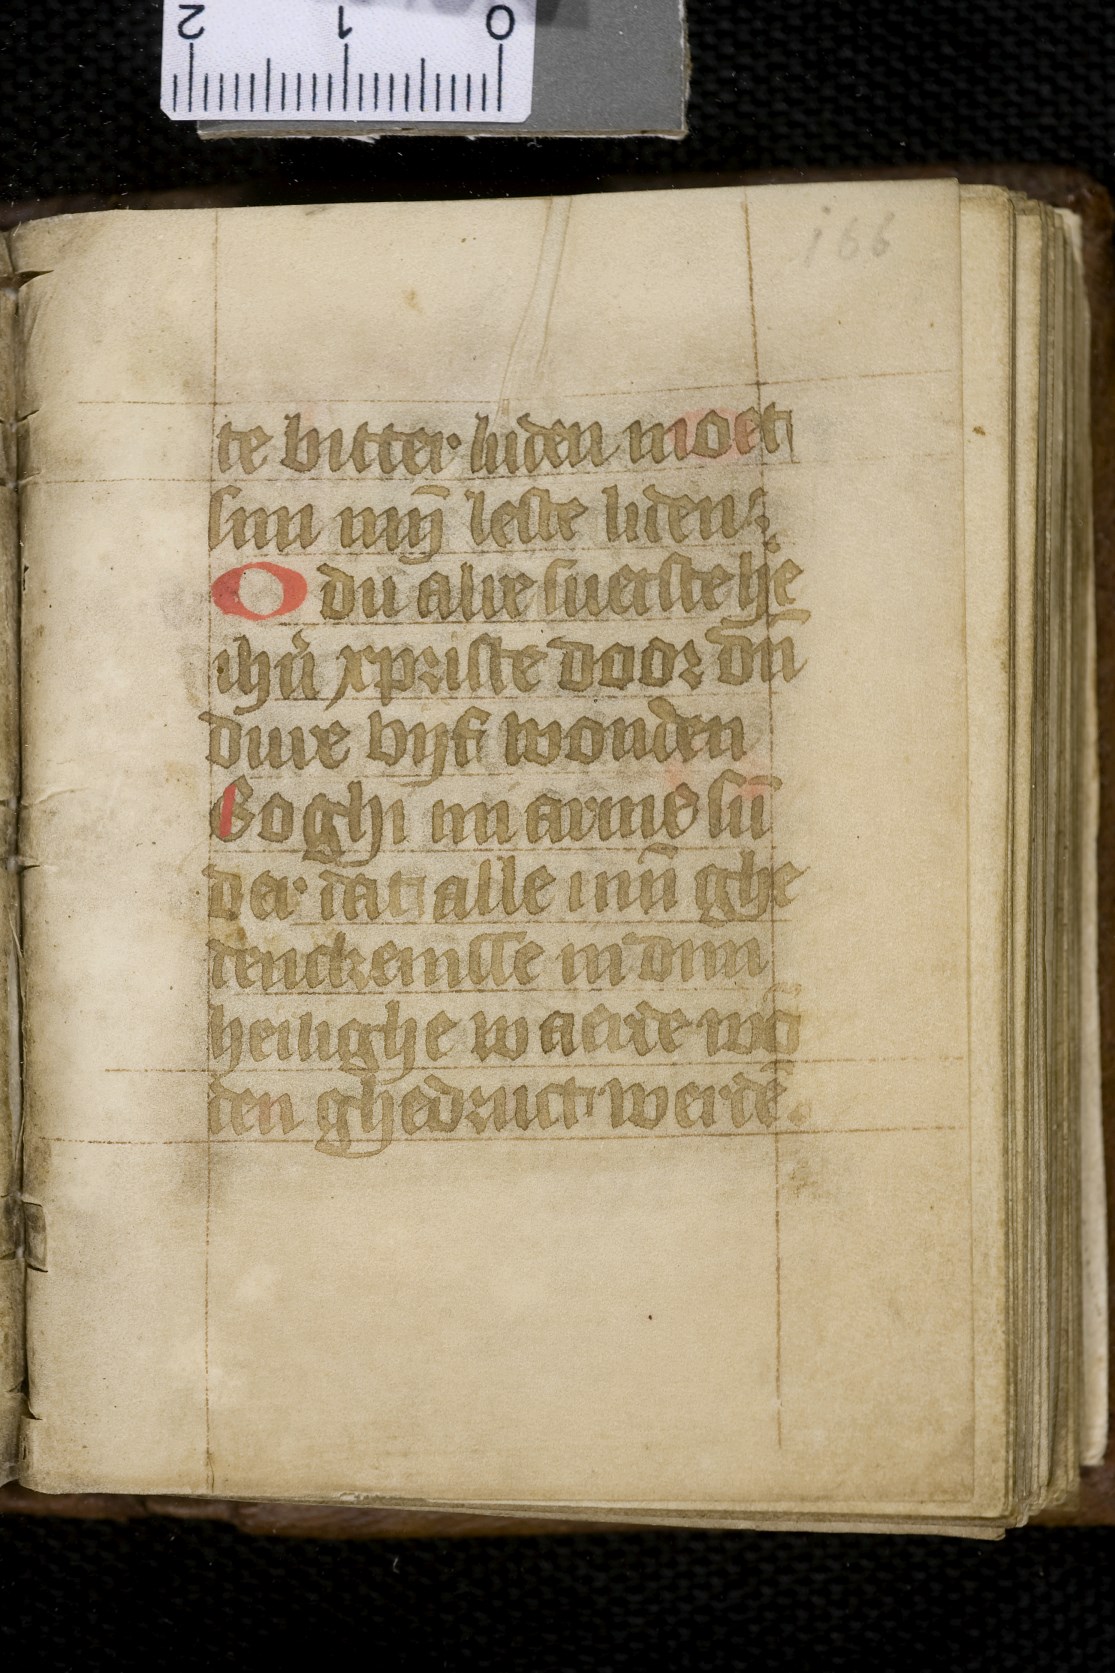 2 1 0
i66
te bitter liiden moet
siin mijn̄ leste liiden
O du alre suetste he
ihū xpriste door dīn
dure vijf wonden
Goghi mi arme sū
der dat alle minū ghe
denckenisse in diin
heilighe waerde wō
den ghedruct werdē.